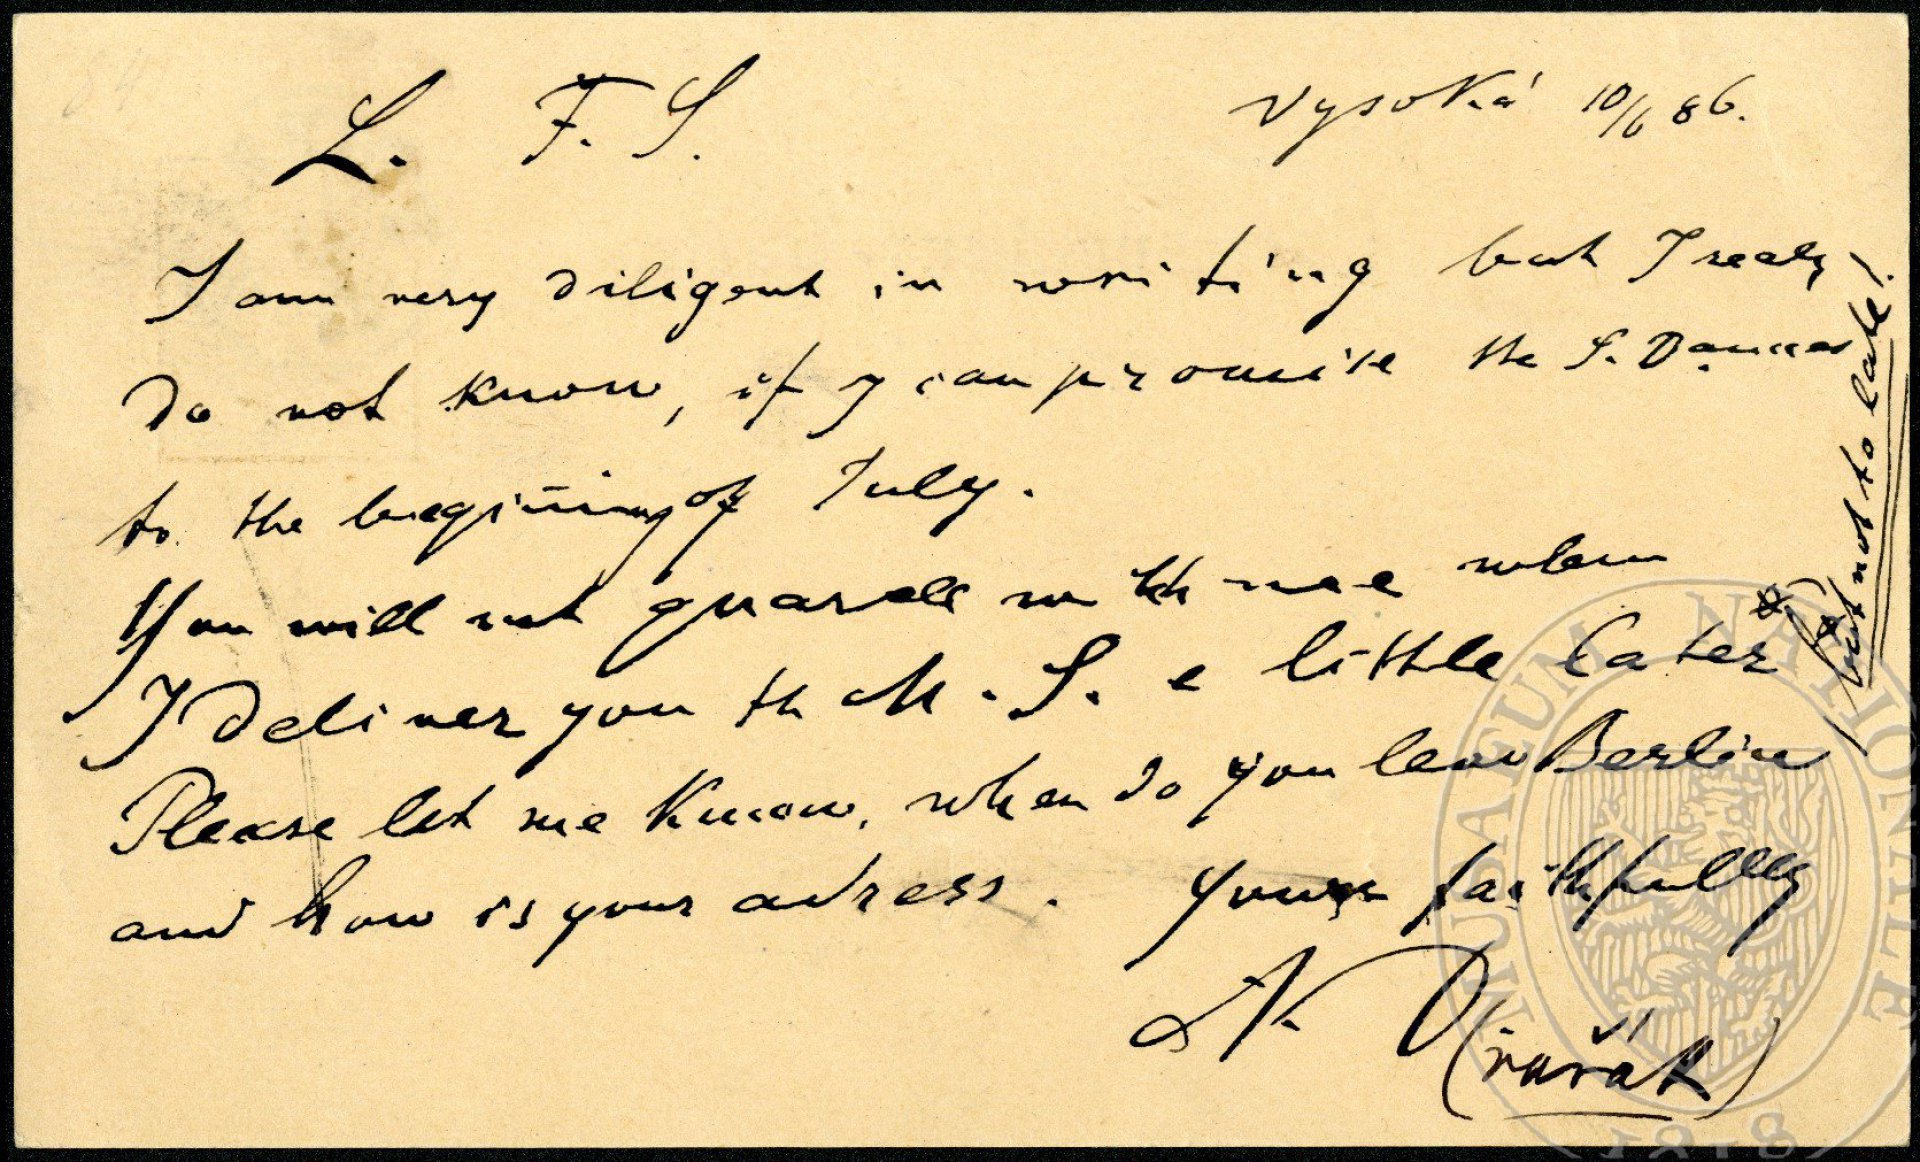 L. F. S.
Vysoká 10/6 86.
I am very diligent in writing but I realy
do not know, if I can promise the S. Dances
to the begining of July.
You will not quarell with mee when
I deliver you th M. S. e little later
but not to late!
Please let me know, when do you leav Berlin
and how is your adress. Yours faithfully
Ant. Dvořák
MUSAEUM NATIONALE
1818